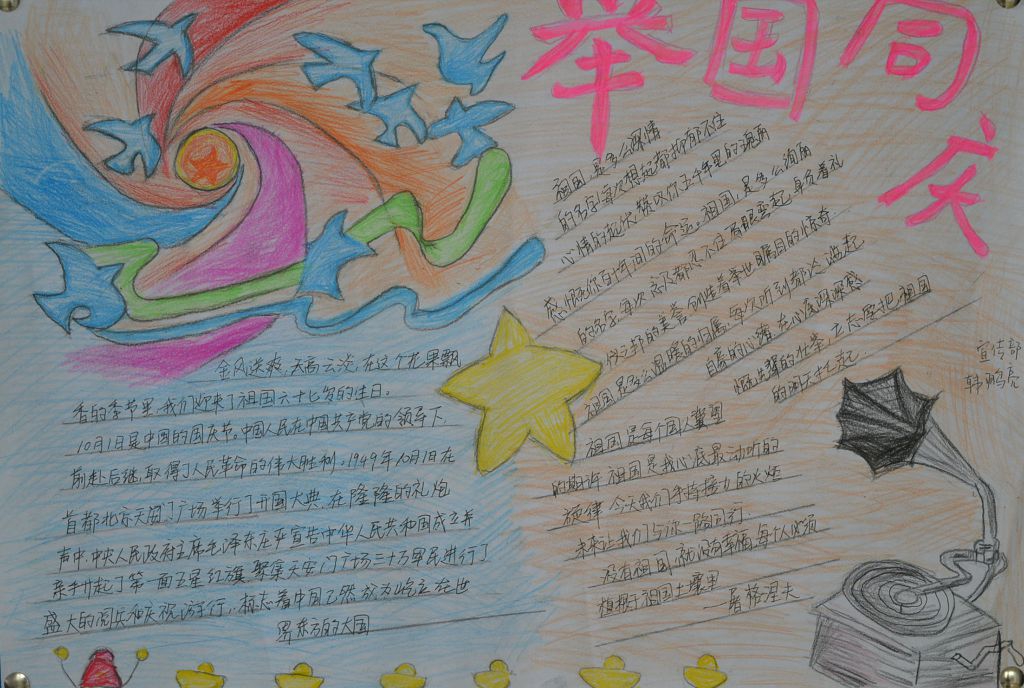 举国同庆
金风送爽,天高云淡,在这个花果飘
香的季节里,我们迎来了祖国六十七岁的生日。
10月1日是中国的国庆节。中国人民在中国共产党的领导下
前赴后继,取得了人民革命的伟大胜利。1949年10月1日在
首都北京天安门广场举行了开国大典,在隆隆的礼炮
声中,中央人民政府主席毛泽东庄严宣告中华人民共和国成立并
亲手升起了第一面五星红旗,聚集天安门广场三十万军民进行了
盛大的阅兵和庆祝游行,标志着中国已然成为屹立在世
界东方的大国
祖国,是多么深情
的名字每次想起都抑郁不住
心情的起伏 犊 你五千年里的
感慨你百年间的命运。祖国,是多么
的名字 每次 都忍不住 身负着礼
仪之邦的美誉 创造着举世瞩目的惊奇
祖国是多么温暖的归属,每次听到都
自豪的心 在心底
的壮举,立志要把祖国
的明天
祖国是每个国人冀望
的期许 祖国是我心底最动听的
旋律 今天我们手持接力的火炬
未来让我们与你一路同行
没有祖国,就没有幸福,每个人必须
植根于祖国土壤里
——屠格涅夫
宣传部
韩鹏亮